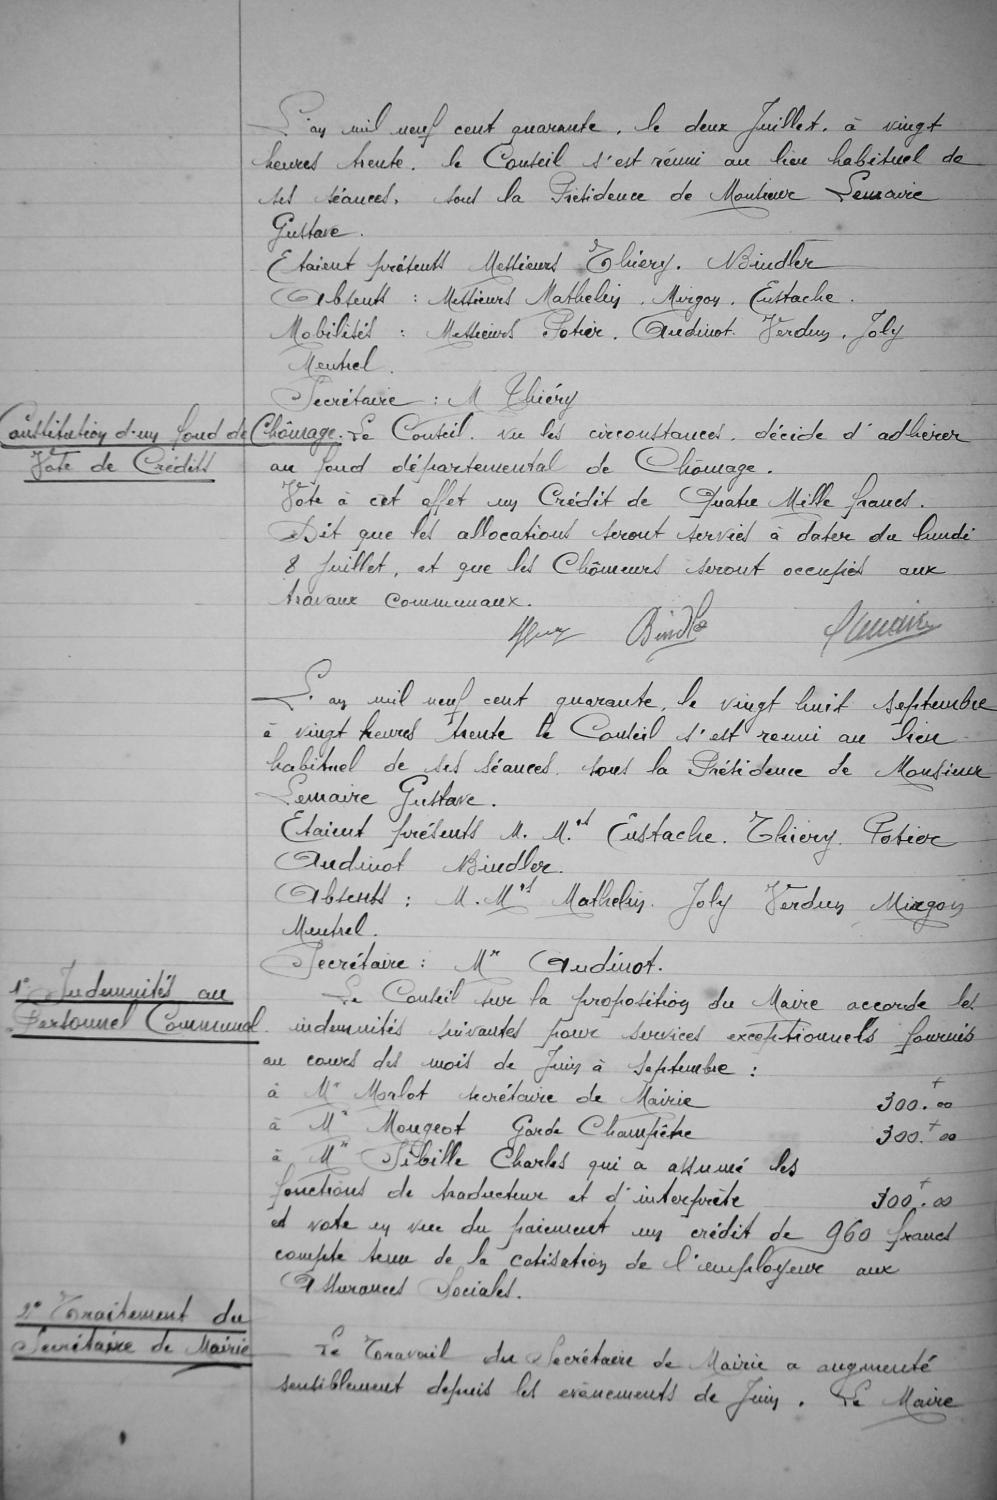 L'an mil neuf cent quarante, le deux Juillet, à vingt
heures trente, le Conseil s'est réuni au lieu habituel de
ses séances, sous la Présidence de Monsieur Lemaire
Gustave.
Etaient présents Messieurs Thiéry. Bindler
Absents : Messieurs Mathelin, Mirgon, Eustache.
Mobilisés : Messieurs Potier, Audinot, Verdun, Joly
Mentrel.
Secrétaire : M Thiéry
Constitution d'un fond de Chômage.
Vote de Crédits
Le Conseil, vu les circonstances, décide d'adhérer
au fond départemental de Chômage.
Vote à cet effet un Crédit de Quatre Mille francs.
Dit que les allocations seront servies à dater du lundi
8 Juillet, et que les Chômeurs seront occupés aux
travaux communaux.
Bindler Lemaire
L'an mil neuf cent quarante, le vingt huit septembre
à vingt heures trente le Conseil s'est reuni au lieu
habituel de ses séances, sous la Présidence de Monsieur
Lemaire Gustave.
Etaient présents M. M.rs Eustache. Thiéry. Potier
Audinot Bindler.
Absents : M. Mrs Mathelin. Joly Verdun Mirgon
Mentrel.
Secrétaire : Mr Audinot.
1° Indemnités au
Personnel Communal
Le Conseil sur la proposition du Maire accorde les
indemnités suivantes pour services exceptionnels fournis
au cours des mois de Juin à Septembre :
à Mr Morlot secrétaire de Mairie 300.f00
à Mr Mougeot Garde Champêtre 300.f00
à Mr Sibille Charles qui a assumé les
fonctions de traducteur et d'interprète 300f.00
et vote en vue du paiement un crédit de 960 francs
compte tenu de la cotisation de l'employeur aux
Assurances Sociales.
2° Traitement du
Secrétaire de Mairie
Le Travail du Secrétaire de Mairie a augmenté
sensiblement depuis les evènements de Juin. Le Maire